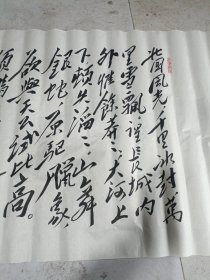 北国风光千里冰封万
里雪飘望长城内
外惟馀莽莽大河上
下顿失滔滔山舞
银蛇原驰腊象
欲与天公试比高
须